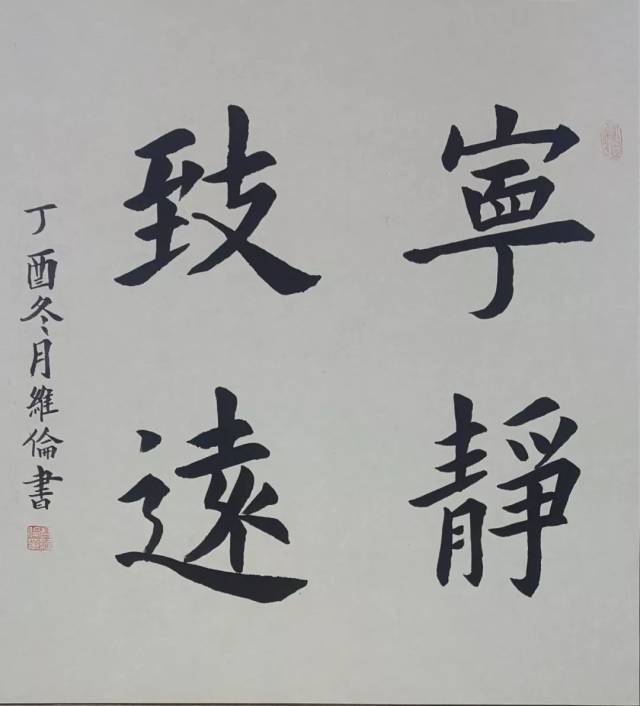 寧靜
致遠
丁酉冬月維倫書